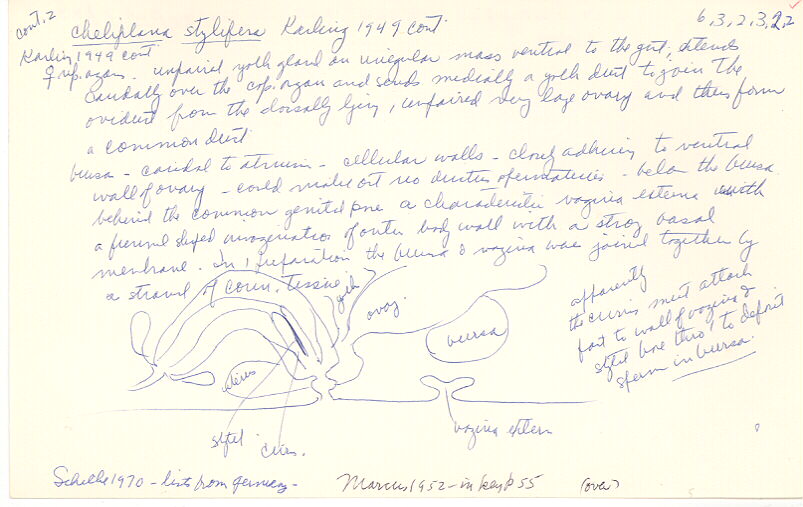 cont, 2
Cheliplana stylifera Karling 1949 cont
6,3,2,3,22
Karling 1949 cont
♀ rep. organ. unpaired yolk gland an irregular mass ventral to the gut, extends
caudally over the cop. organ and sends medially a yolk duct to join the
oviduct from the dorsally lying, unpaired very large ovary and thus form
a common duct
bursa - caudal to atrium - cellular walls - closely adhering to ventral
wall of ovary - could make out no ductus spermaticus - below the bursa
behind the common genital pore a characteristic vagina externa with
a funnel shaped invagination of outer body wall with a strong basal
membrane. In 1 preparation the bursa & vagina were joined together by
a strand of conn. tissue
yolk
ovary
bursa
uterus
stylet
cirrus.
vagina extern
apparently
the cirrus must attach
fast to wall of vagina &
stylet bore thro' to deposit
sperm in bursa.
1970 - lists from Germany -
Marcus 1952 - in key p 55
(over)